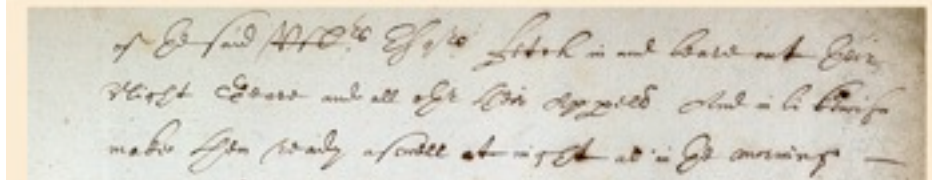 of the said Fetch in and beare out their
Night geare and all other their Apparell And in likewise
make them ready aswell at night as in the morninge —